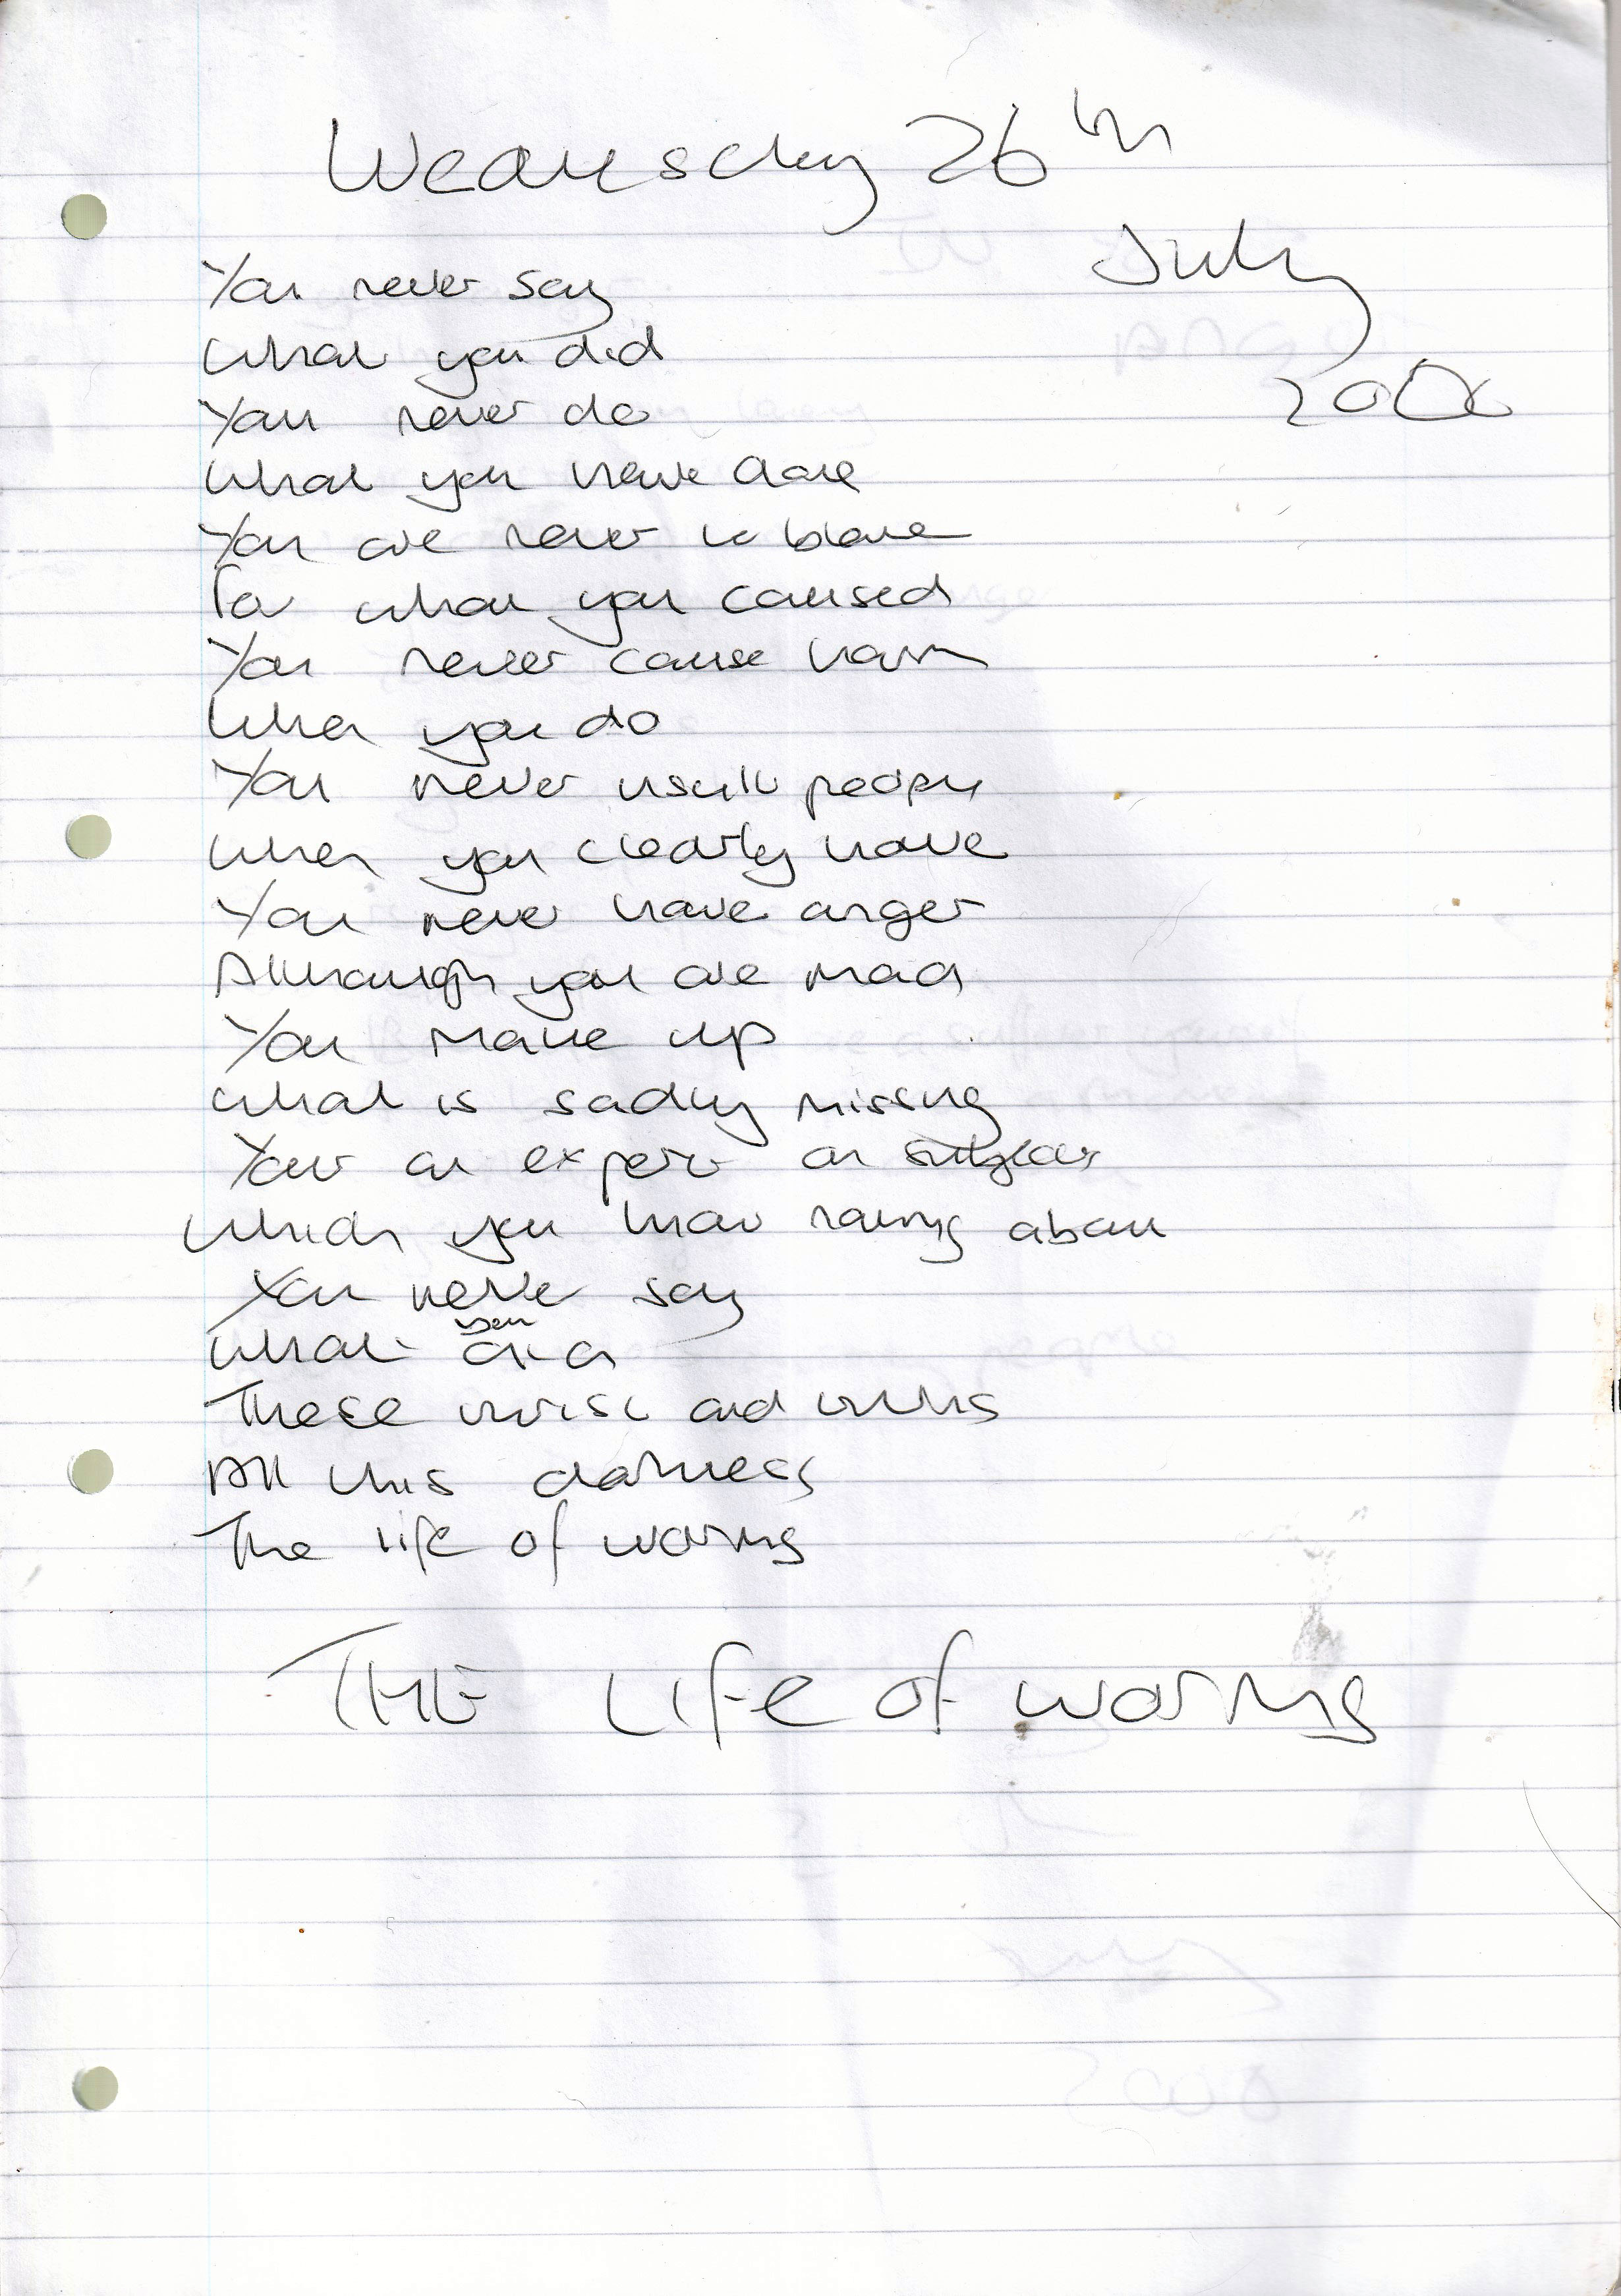 Wednesday 26th
July
2006
You never say
What you did
You never do
What you have done
You are never to blame
For what you caused
You never cause harm
When you do
You never insult people
When you clearly have
You never have anger
Although you are mad
You make up
What is sadly missing
Your an expert on subjects
Which you know nothing about
You never say
What you did
These twists and turns
All this darkness
The life of worms
THE Life of worms